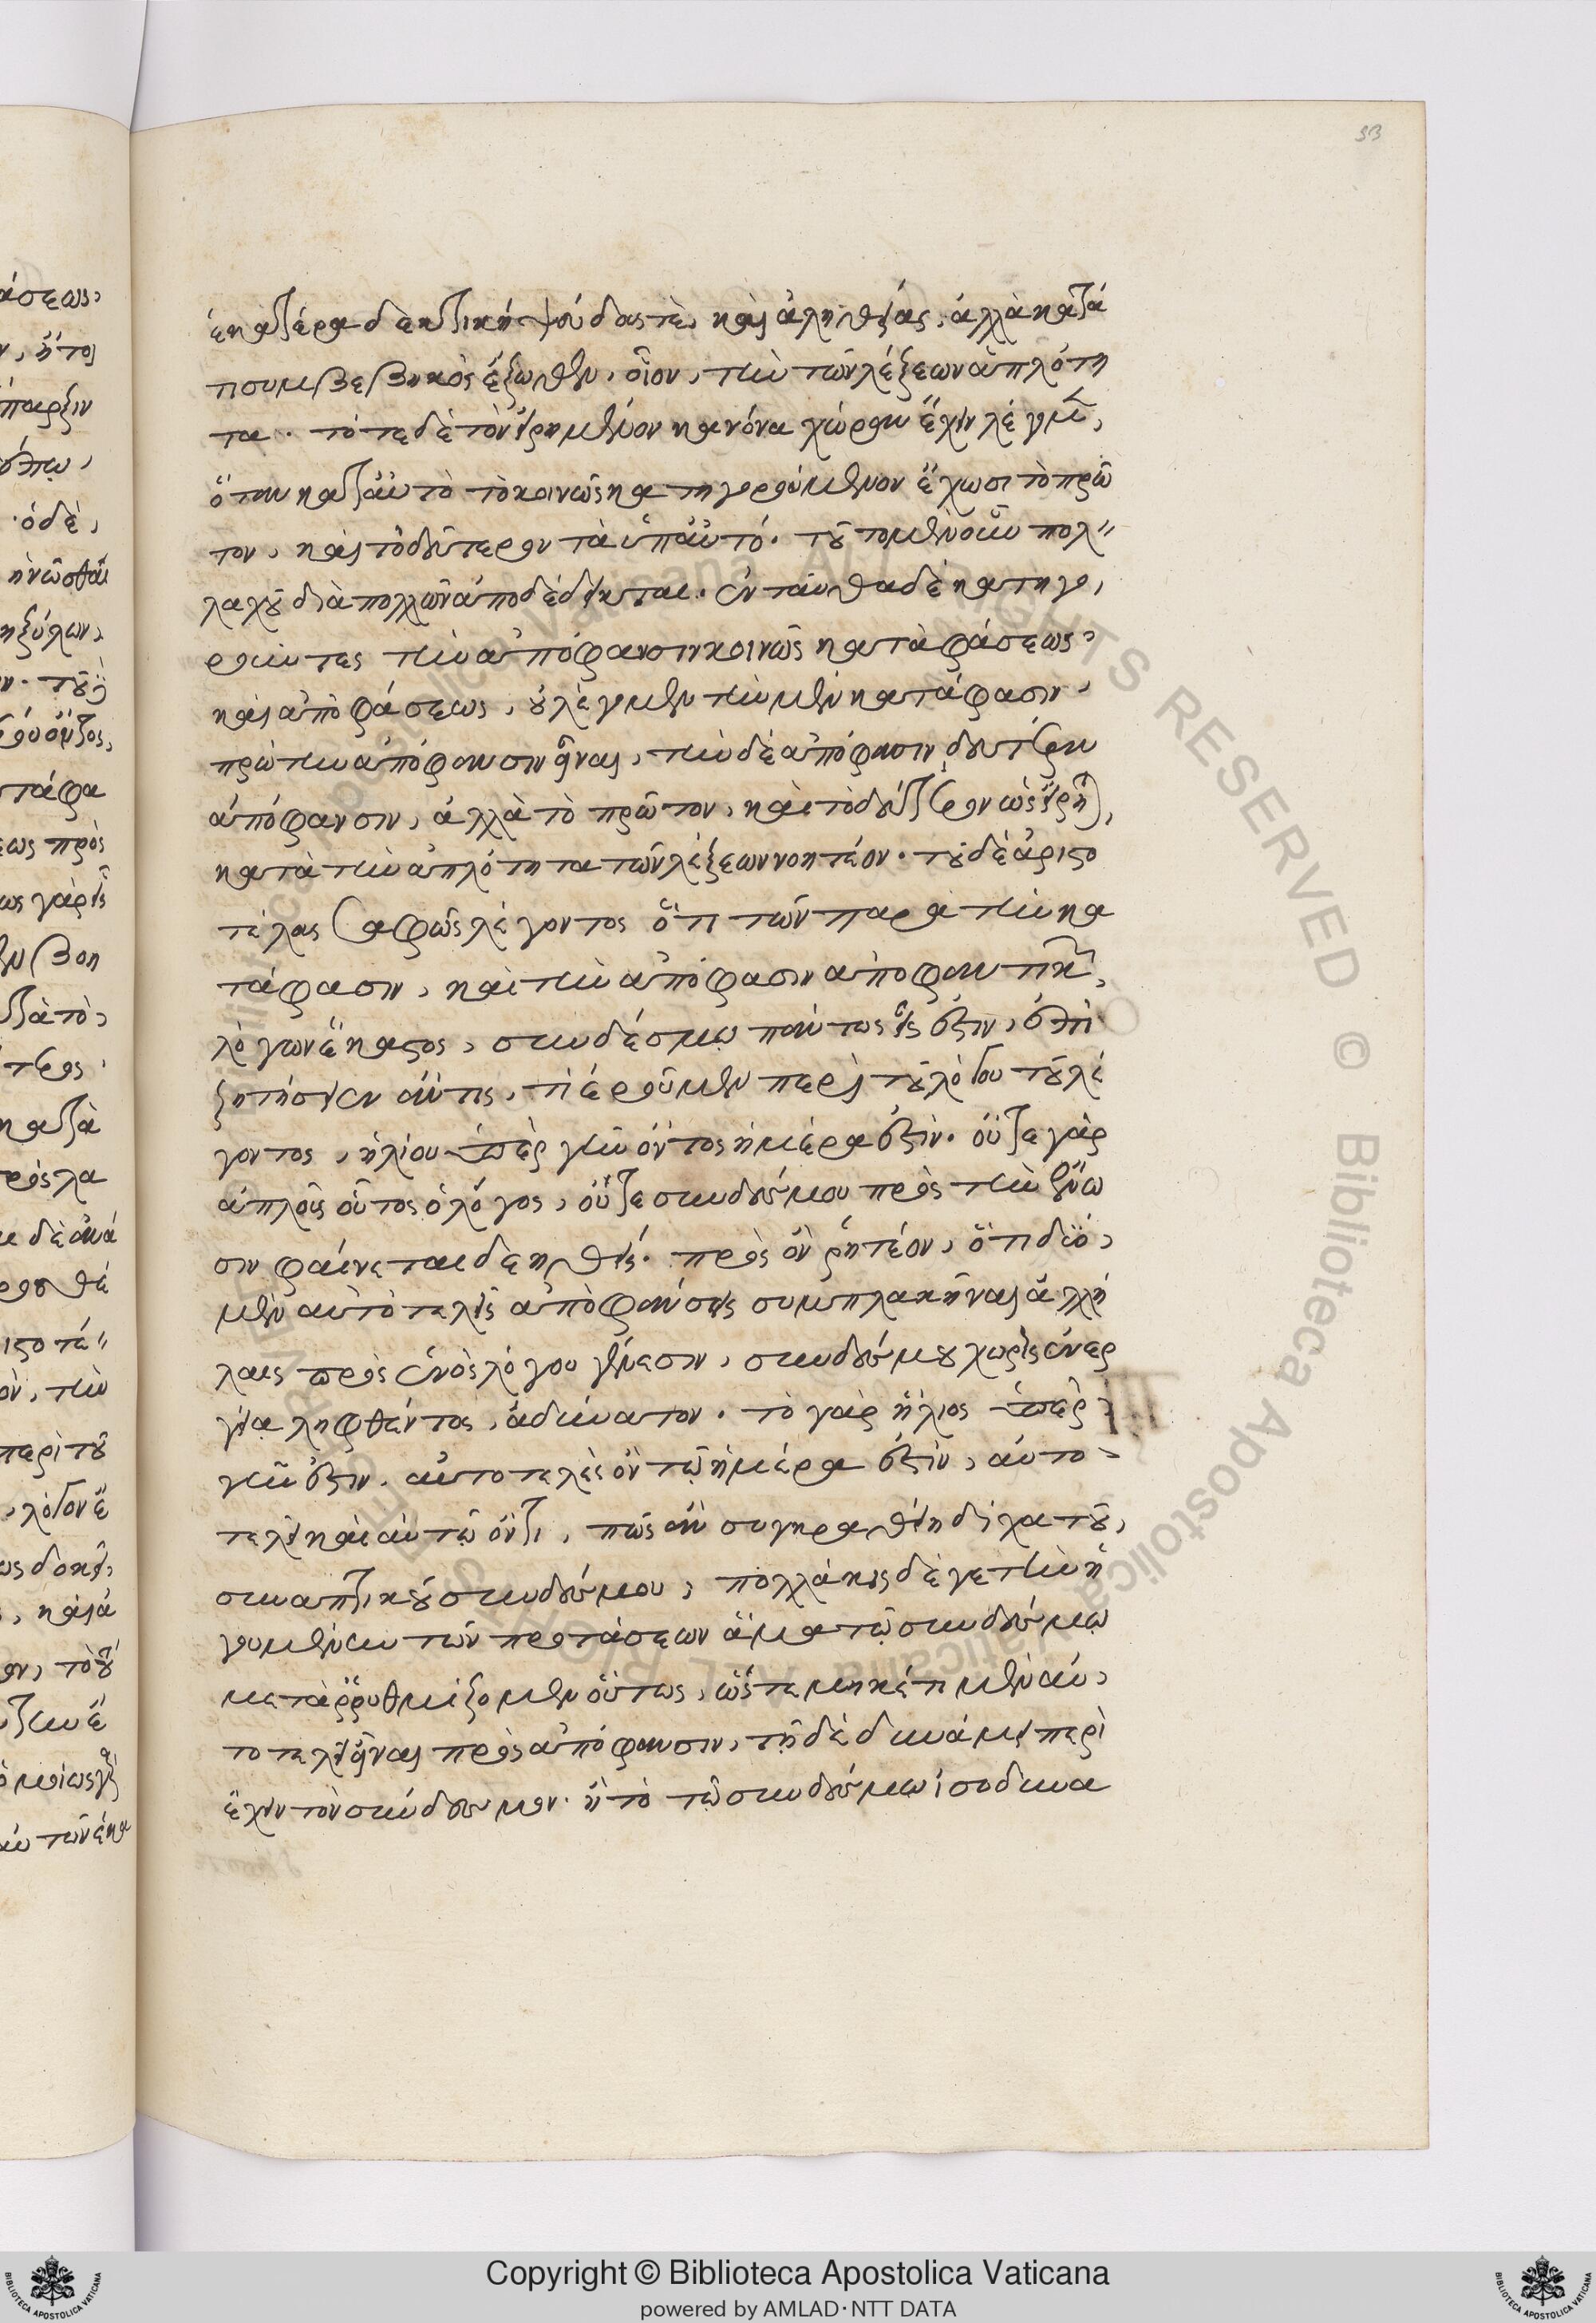 53
ἑκατέρα δεκτικὴ ψεύδους τὲ, καὶ ἀληθείας, ἀλλὰ κατά
τι συμβεβηκὸς ἔξωθεν, οἷον, τὴν τῶν λέξεων ἁπλότη
τα. τότε δὲ τὸν εἰρημένον κανόνα χώραν ἔχειν λέγομεν,
ὅταν κατ' αὐτὸ τὸ κοινῶς κατηγορούμενον ἔχωσι τὸ πρῶ
τον, καὶ τὸ δεύτερον τὰ ὑπ' αὐτό. τοῦτο μὲν οὖν πολ"
λαχοῦ διὰ πολλῶν ἀποδέδεικται. ἐνταῦθα δὲ κατηγο,
ροῦντες τὴν ἀπόφανσιν κοινῶς καταφάσεως,
καὶ ἀποφάσεως, οὐ λέγομεν τὴν μὲν κατάφασιν,
πρώτην ἀπόφανσιν εἶναι, τὴν δὲ ἀπόφασιν, δευτέραν
ἀπόφανσιν, ἀλλὰ τὸ πρῶτον, καὶ τὸ δεύτερον ὡς εἴρηται,
κατὰ τὴν ἁπλότητα τῶν λέξεων νοητέον. τοῦ δὲ ἀριστο
τέλους σαφῶς λέγοντος ὅτι τῶν παρὰ τὴν κα
τάφασιν, καὶ τὴν ἀπόφασιν ἀποφαντικῶν,
λόγων ἕκαστος, συνδέσμῳ πάντως εἷς ἐστιν,
ζητήσειεν ἄν τις, τί ἐροῦμεν περὶ τοῦ λόγου τοῦ λέ
γοντος, ἡλίου ὑπὲρ γῆν ὄντος ἡμέρα ἐστίν. οὔτε γὰρ
ἁπλοῦς οὗτος ὁ λόγος, οὔτε συνδέσμου πρὸς τὴν ἕνω
σιν φαίνεται δεηθείς. πρὸς ὃν ῥητέον, ὅτι δύο,
μὲν αὐτοτελεῖς ἀποφάνσεις συμπλακῆναι ἀλλή
λαις πρὸς ἑνὸς λόγου γένεσιν, συνδέσμου χωρὶς ἐνερ
γείᾳ ληφθέντος, ἀδύνατον. τὸ γὰρ ἥλιος ὑπὲρ
γῆν ἐστιν. αὐτοτελὲς ὂν τῷ ἡμέρα ἐστὶν, αὐτο-
τελεῖ καὶ αὐτῷ ὄντι, πῶς ἂν συγκραθείη δίχα τοῦ,
συναπτικοῦ συνδέσμου, πολλάκις δέ γε τὴν ἡ
γουμένην τῶν προτάσεων ἅμα τῷ συνδέσμῳ
μεταρρυθμίζομεν οὕτως, ὥστε μηκέτι μὲν αὐ,
τοτελῆ εἶναι πρὸς ἀπόφανσιν, τῇ δὲ δυνάμει περὶ
ἔχειν τὸν σύνδεσμον. ἢ τὸ τῷ συνδέσμῳ ἰσοδυνα
Copyright © Biblioteca Apostolica Vaticana
powered by AMLAD·NTT DATA